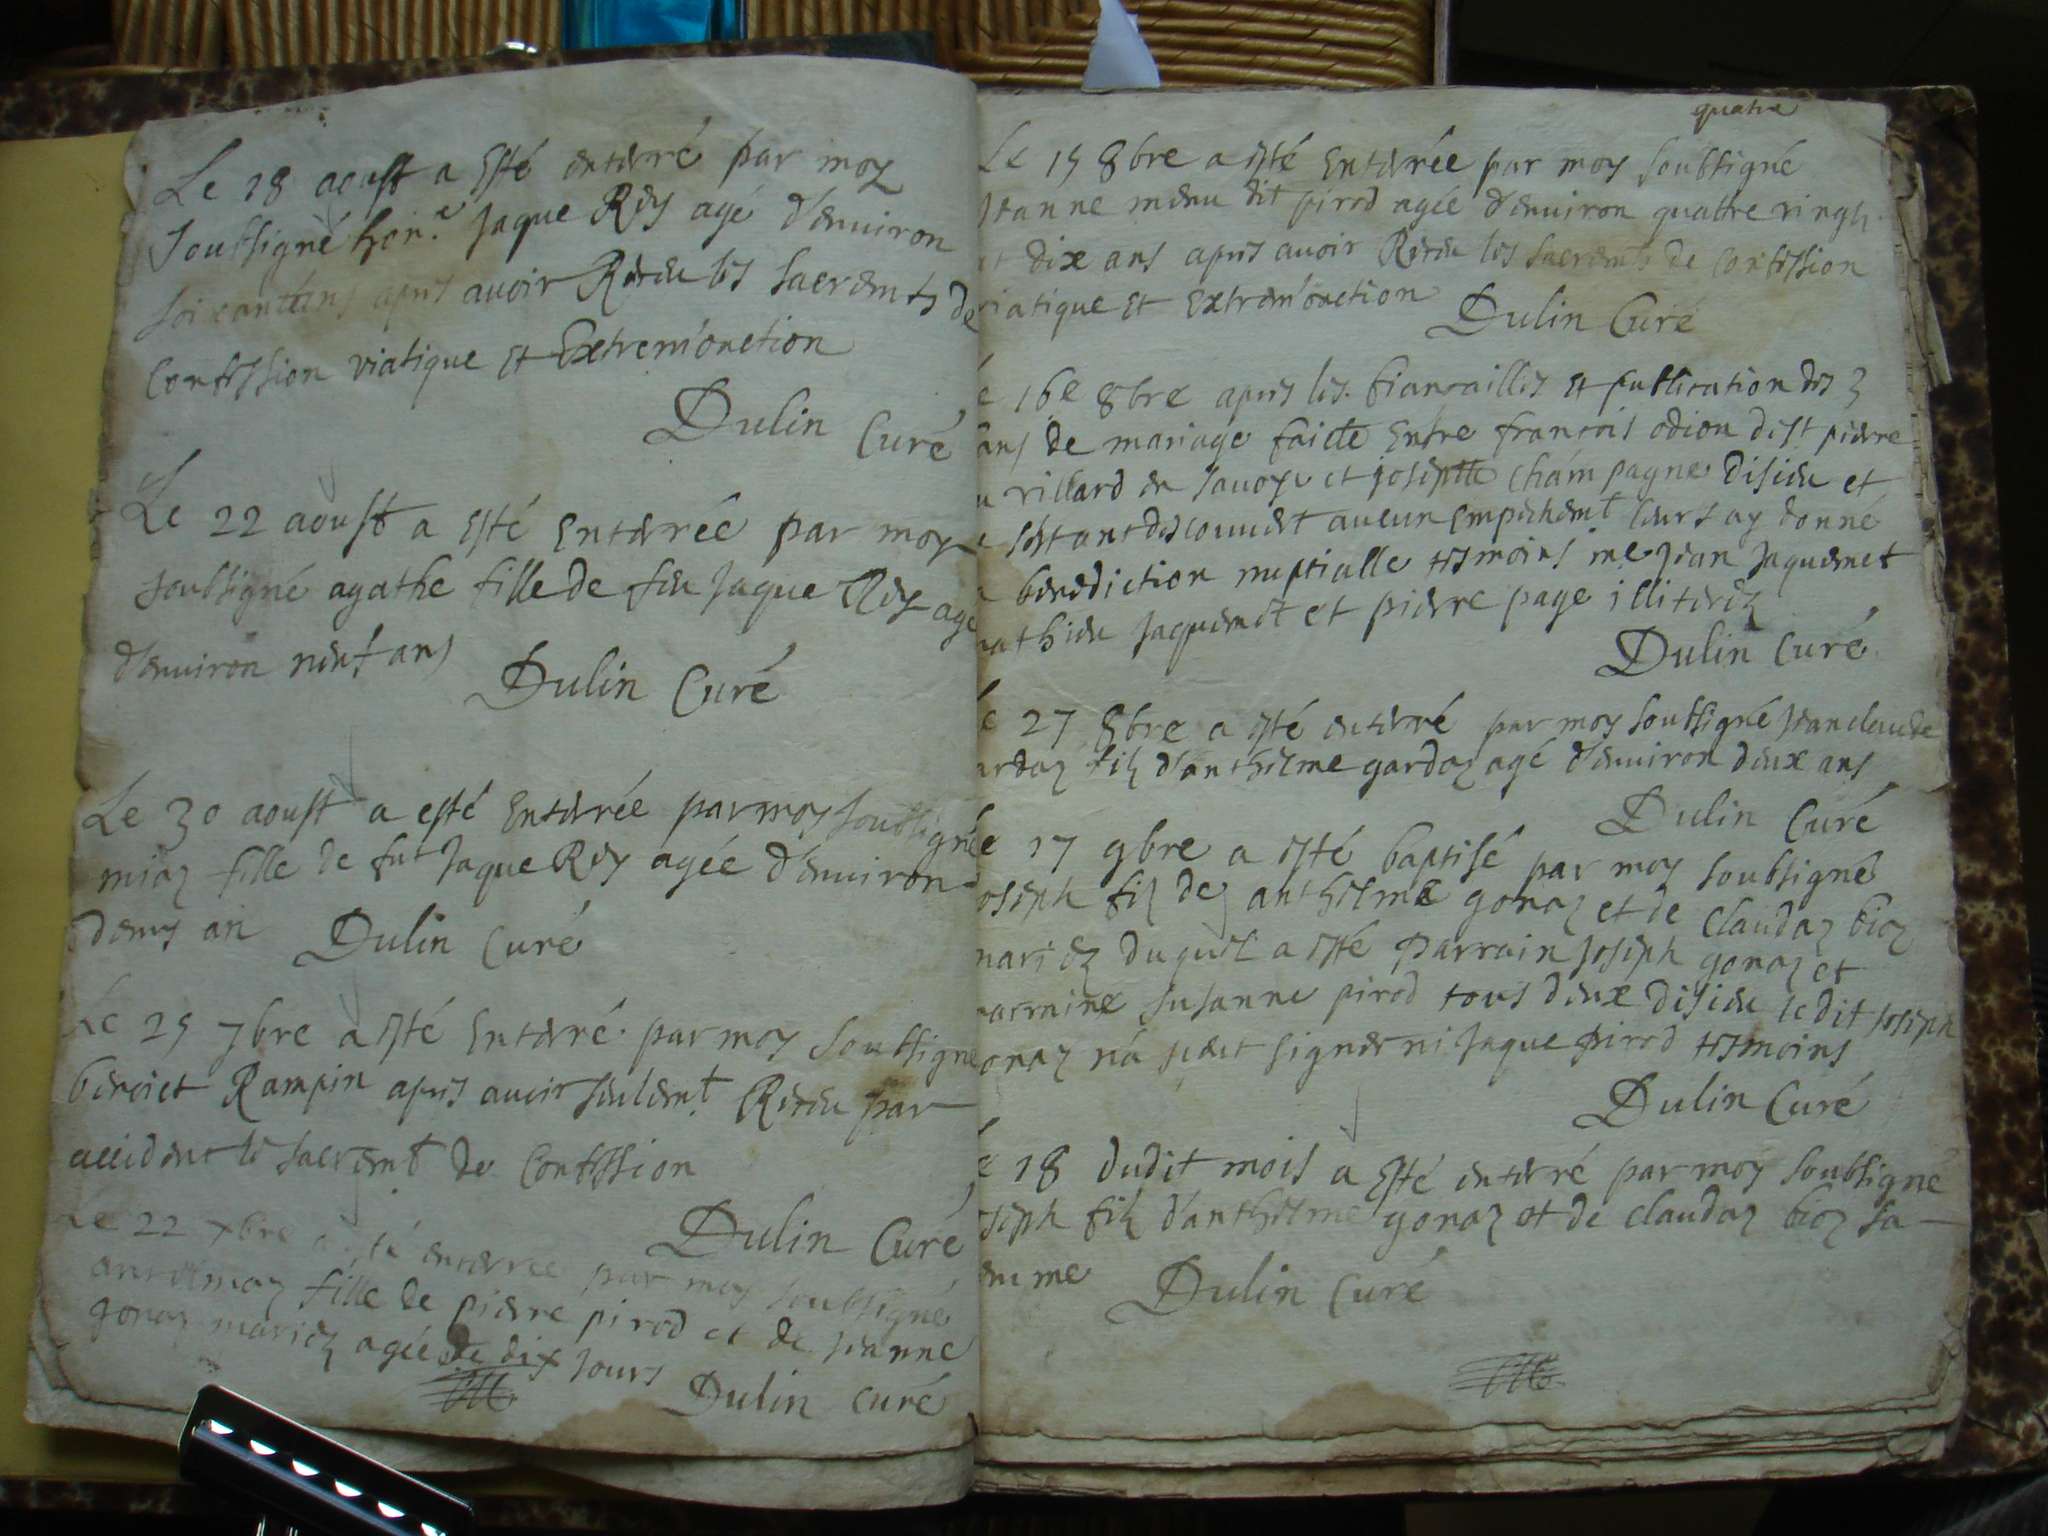 Le 18 aoust a esté enterré par moy
soubsigné hon.e Jaque Rey agé d'environ
soixante ans apres avoir Receu les sacrements de
Confession viatique et Extrem'onction
Dulin Curé
Le 22 aoust a esté enterrée par moy
soubsigné agathe fille de feu Jaque Rey agé
d'environ neuf ans
Dulin Curé
Le 30 aoust a esté enterrée par moy soubsigné
miaz fille de fut Jaque Rey agée d'environ
demy an Dulin Curé
Le 25 7bre a esté enterré par moy soubsigné
benoict Rampin apres avoir seulemt Receu par
accident le sacremt de Confession
Dulin Curé
Le 22 xbre a esté enterrée par moy soubsigné
antelmaz fille de pierre pirod et de jeanne
gonaz mariez agée de dix jours
Dulin Curé
quatre
Le 15 8bre a esté enterrée par moy soubsigné
Jeanne menu dit pirod agée d'environ quattre vingh
et dix ans apres avoir Receu les sacremts de confession
viatique et extrem'onction
Dulin Curé
Le 16e 8bre apres les fiancailles et publication des 3
bans de mariage faicte entre francois odion dest pierre
du villard en savoye et josephte champagne disieu et
ne sestant descouvert aucun empechemt leurs ay donné
la benediction nuptialle tesmoins me jean Jaquemet
mathieu Jaquemet et pierre page illiterez
Dulin Curé
Le 27 8bre a esté enterré par moy soubsigné jean claude
gardaz filz d'anthelme gardaz agé d'environ deux ans
Dulin Curé
Le 17 9bre a esté baptisé par moy soubsigné
joseph filz de anthelme gonaz et de claudaz bioz
mariez duquel a esté parrain joseph gonaz et
marraine susanne pirod tous deux disieu ledit joseph
gonaz n'a sceut signer ni jaque pirod tesmoins
Dulin Curé
Le 18 dudit mois a esté enterré par moy soubsigné
joseph filz d'anthelme gonaz et de claudaz bioz sa
femme Dulin Curé